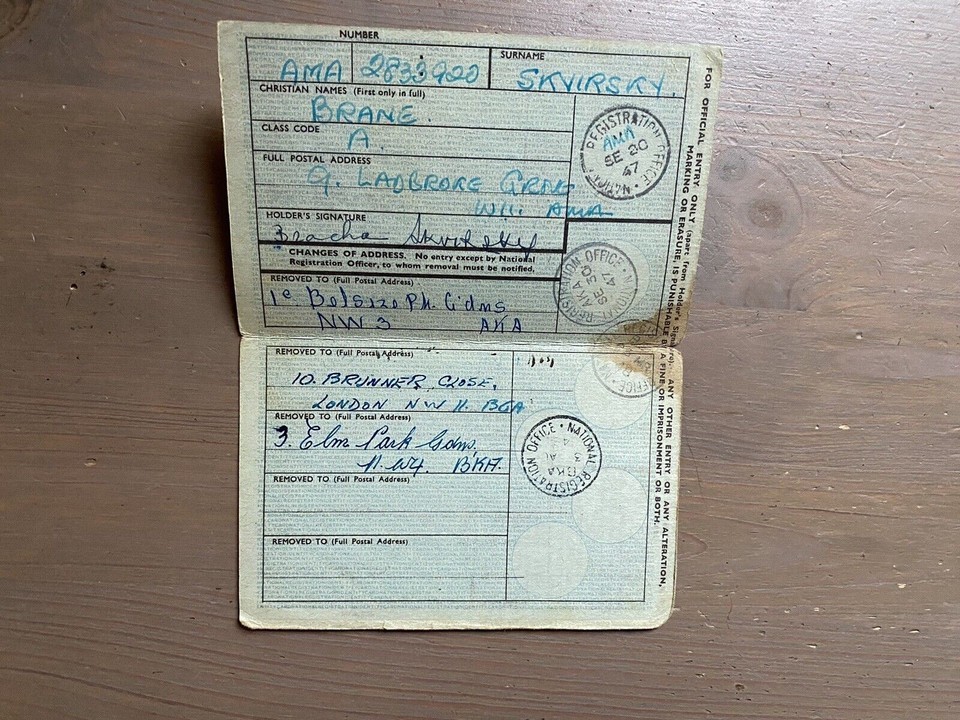 NUMBER
AMA 2833920
SURNAME
SKVIRSKY.
CHRISTIAN NAMES (First only in full)
BRANE.
CLASS CODE
A.
FULL POSTAL ADDRESS
9. LADBROKE GRDNS
W11. AMA
HOLDER'S SIGNATURE
Bracha Skvirsky
CHANGES OF ADDRESS. No entry except by National
Registration Officer, to whom removal must be notified.
REMOVED TO (Full Postal Address)
1c Belsize Pk. Gdns
NW3 AKA
REMOVED TO (Full Postal Address)
10. BRUNNER CLOSE,
LONDON NW 11. BGA
REMOVED TO (Full Postal Address)
3. Elm Park Gdns,
N.W4. BKA.
REMOVED TO (Full Postal Address)
REMOVED TO (Full Postal Address)
NATIONAL REGISTRATION OFFICE
AMA
SE 20
47
NATIONAL REGISTRATION OFFICE
AKA
47
NATIONAL REGISTRATION OFFICE
BKA
FOR OFFICIAL ENTRY ONLY (apart from Holder's Signature). ANY OTHER ENTRY OR ANY ALTERATION,
MARKING OR ERASURE, IS PUNISHABLE BY A FINE OR IMPRISONMENT OR BOTH.